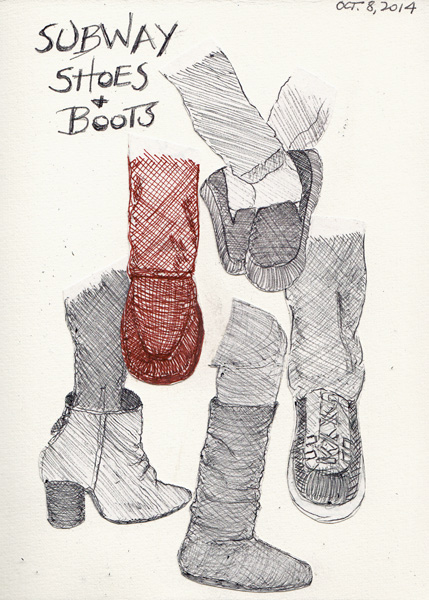 OCT. 8, 2014
SUBWAY
SHOES
+
BOOTS